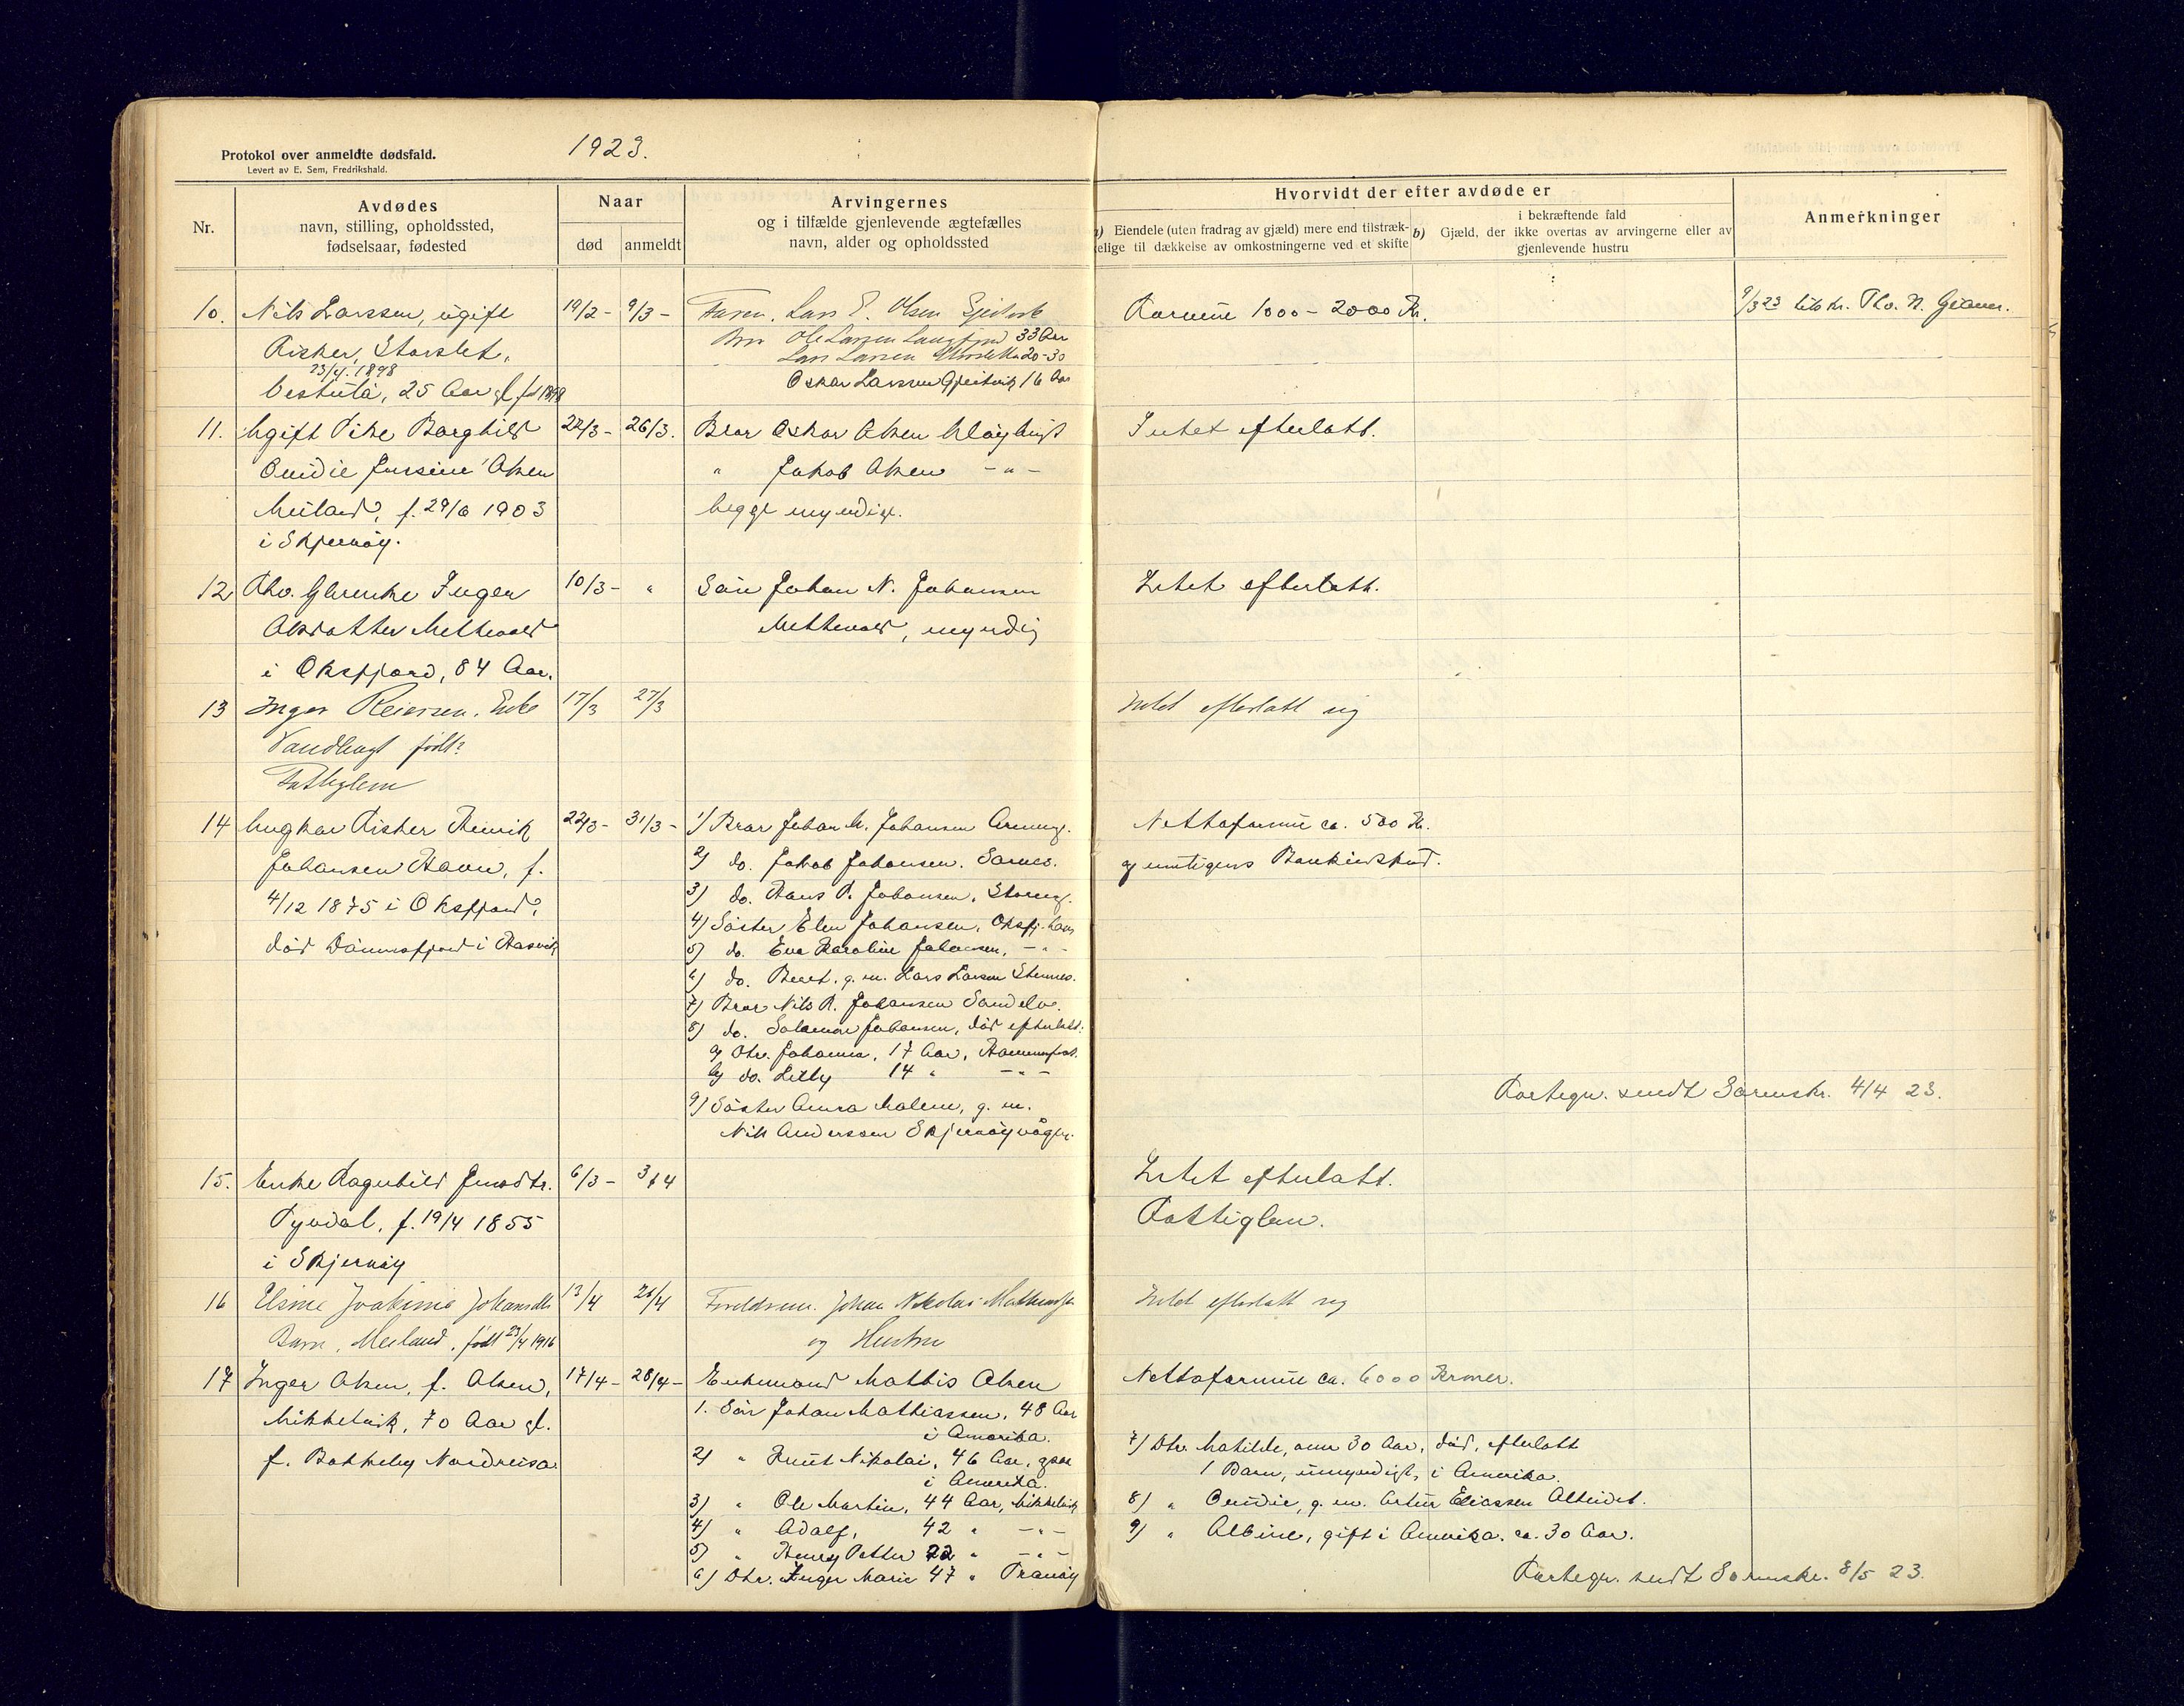 Protokol over anmeldte dødsfald.
Levert av E. Sem, Fredrikshald.
1923.
Nr.
Avdødes
navn, stilling, opholdssted,
fødselsaar, fødested
Naar
død
anmeldt
Arvingernes
og i tilfælde gjenlevende ægtefælles
navn, alder og opholdssted
Hvorvidt der efter avdøde er
a) Eiendele (uten fradrag av gjæld) mere end tilstræk-
kelige til dækkelse av omkostningerne ved et skifte
i bekræftende fald
b) Gjæld, der ikke overtas av arvingerne eller av
gjenlevende hustru
Anmerkninger
10. Nils Larssen, ugift 19/2 - 9/3 - Faren, Lars E. Olsen
Formue 1000 - 2000 Kr.
9/3 23
Fisker, Storslet, Bror Ole Larsen Langfjord 33 Aar
23/4. 1898 Lars Larsen 20-30
25 Aar gl. fd 1898 Oskar Larssen Gjeitvik 16 Aar
11. Ugift Pike Borghild 22/3 - 26/3. Bror Oskar Olsen
Intet efterlatt.
Ovidie Jensine Olsen " Jakob Olsen - " -
Meiland, f. 29/6 1903 begge myndige.
i Skjervöy.
12 Fhv. Inger 10/3 - " Sön Johan N. Johansen
Intet efterlatt.
Olsdatter Mettevold Mettevold, myndig
i Oksfjord, 84 Aar.
13 Inger Reiersen, Enke 17/3 27/3
Intet efterlatt sig
Vandbugt født?
Fattiglem
14 Ungkar Fisker Henrik 22/3 - 31/3 - 1) Bror Johan M. Johansen
Nettoformue ca. 500 Kr.
Johansen Havn, f. 2) do. Jakob Johansen,
og muligens Bankinskud.
4/12 1875 i Oksfjord, 3) do. Hans P. Johansen, Storeng.
död Dönnesfjord i Hasvik 4) Söster Elen Johansen, Oksfj. havn
5) do. Eva Karoline Johansen, - " -
6) do. Beret, g. m. Lars Larsen
7) Bror Nils R. Johansen
8) do. Salamon Johansen, död efterlatt:
a) Dtr. Johanna, 17 Aar, Hammerfest.
b) do. Lilly 14 " - " -
9) Söster Anna Malene, g. m.
Nils Anderssen Skjervöyvågen.
Fortegn. sendt Sorenskr. 4/4 23.
15. Enke Ragnhild 6/3 - 3/4
Intet efterlatt.
f. 19/4 1855
Fattiglem.
i Skjervöy
16 Joakima Johansdtr 13/4 21/4 Foreldrene. Johan Nikolai
Intet efterlatt sig
Barn, Meiland, født 23/4 1916 og Hustru
17 Inger Olsen, f. Olsen, 17/4 - 28/4 - Enkemand Mathis Olsen
Nettoformue ca. 6000 Kroner.
Mikkelvik, 70 Aar gl. 1. Sön Johan Mathiassen, 48 Aar
i Amerika.
f. Bakkeby Nordreisa 2) " Knut Nikolai, 46 Aar,
i Amerika.
3) " Ole Martin, 44 Aar, Mikkelvik
4) " Adolf, 42 " - " -
5) " Henry Petter 22 " - " -
6) Dtr. Inger Marie 47 "
7) Dtr. Matilde, over 30 Aar, död, efterlatt
1 Barn, umyndigt, i Amerika.
8) " Ovidie, g. m. Artur Eliassen Alteidet.
9) " Albine, gift i Amerika. ca. 30 Aar.
Fortegn. sendt Sorenskr. 8/5 23.